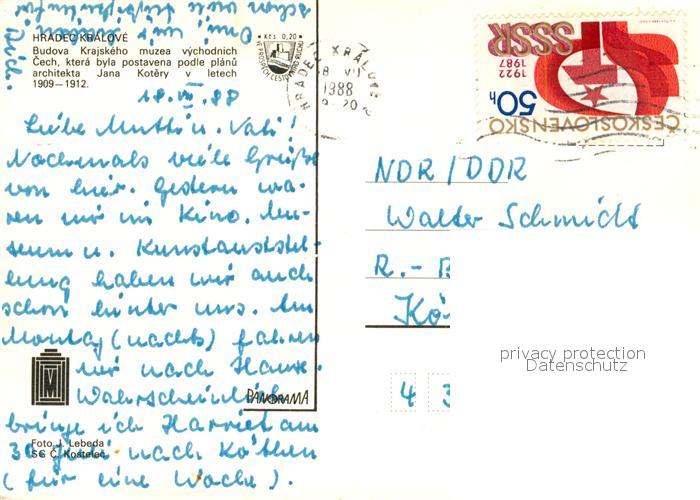 HRADEC KRÁLOVÉ
Budova Krajského muzea východních
Čech, která byla postavena podle plánů
architekta Jana Kotěry v letech
1909—1912.
Kčs 0,20
VE PROSPĚCH CESTOVNÍHO RUCHU
HRADEC KRÁLOVÉ
1988
SSSR
1922
1987
50h
ČESKOSLOVENSKO
18.VII.88
Liebe Mutti u. Vati!
Nochmals viele Grüße
von hier. Gestern wa-
ren wir im Kino. Mu-
seum u. Kunstausstel-
lung haben wir auch
schon hinter uns. Am
Montag (nachts) fahren
wir nach Hause.
Wahrscheinlich
bringe ich Harriet am
30. Juli nach Köthen
(für eine Woche).
NDR/DDR
Walter Schmidt
R.-
Kö
4 3
PANORAMA
M
Foto J. Lebeda
SG Č. Kostelec
privacy protection
Datenschutz